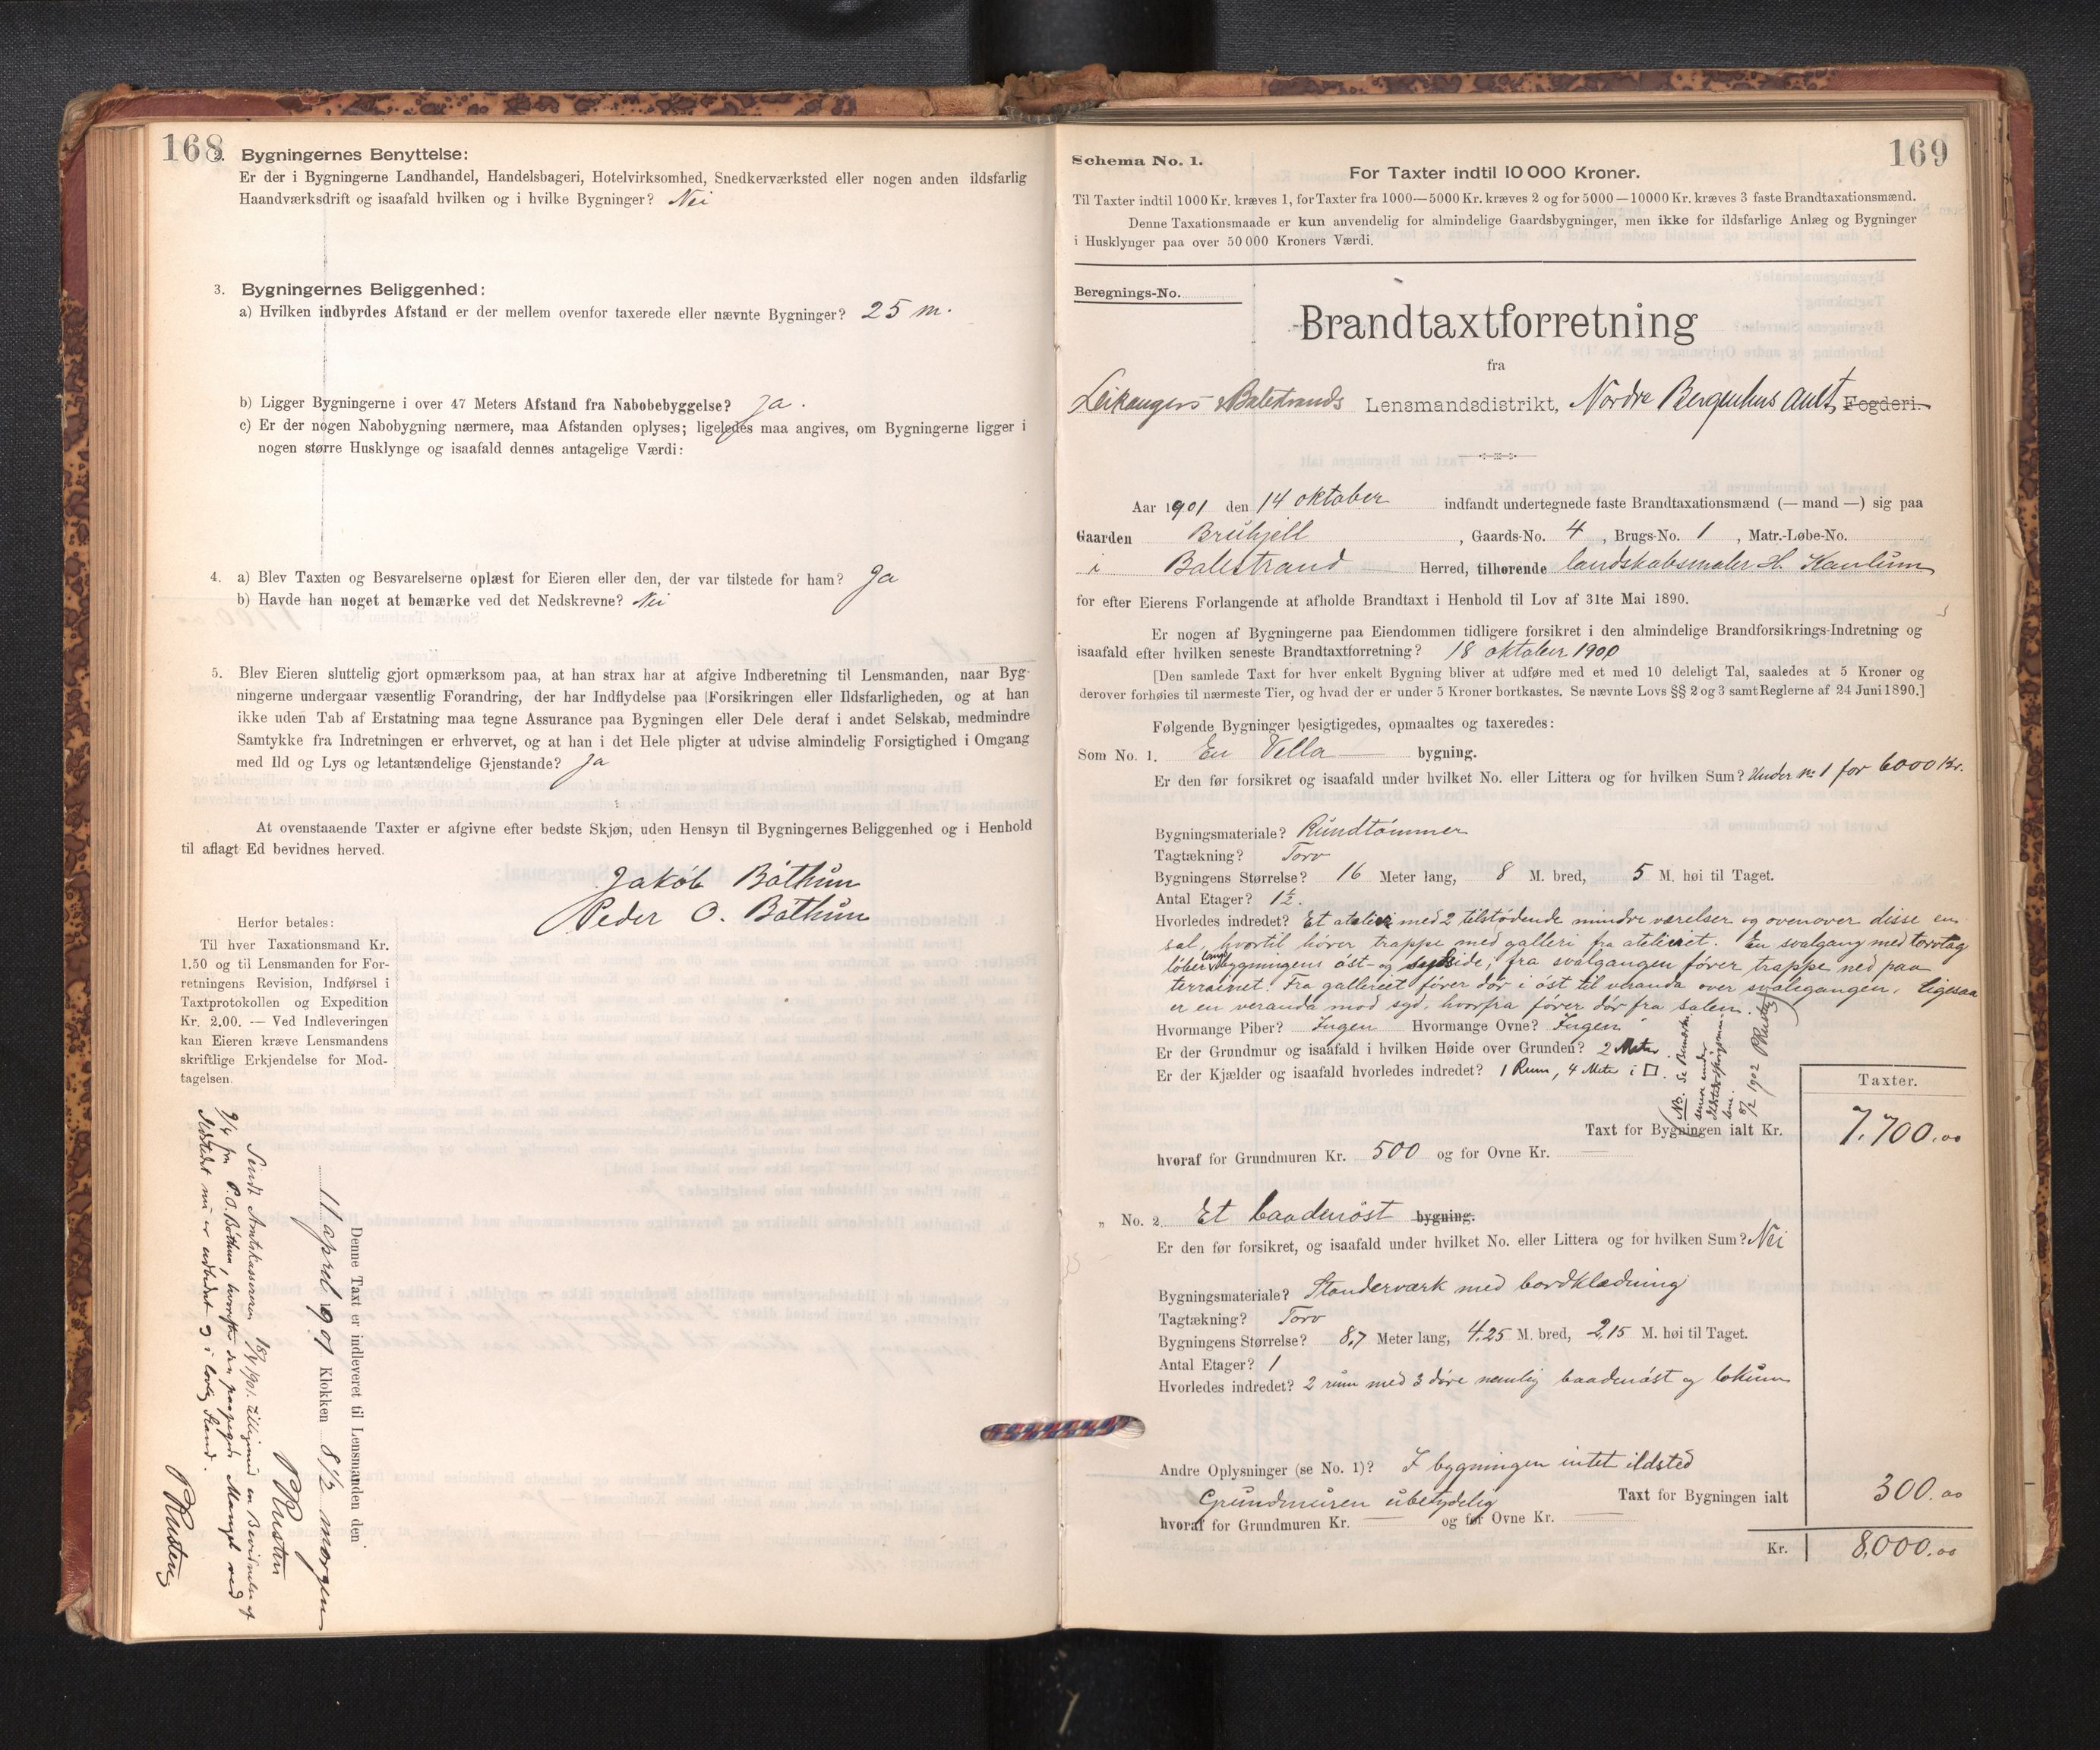 168
2. Bygningernes Benyttelse:
Er der i Bygningerne Landhandel, Handelsbageri, Hotelvirksomhed, Snedkerværksted eller nogen anden ildsfarlig
Haandværksdrift og isaafald hvilken og i hvilke Bygninger? Nei
3. Bygningernes Beliggenhed:
a) Hvilken indbyrdes Afstand er der mellem ovenfor taxerede eller nævnte Bygninger? 25 m.
b) Ligger Bygningerne i over 47 Meters Afstand fra Nabobebyggelse? Ja.
c) Er der nogen Nabobygning nærmere, maa Afstanden oplyses; ligeledes maa angives, om Bygningerne ligger i
nogen større Husklynge og isaafald dennes antagelige Værdi:
4. a) Blev Taxten og Besvarelserne oplæst for Eieren eller den, der var tilstede for ham? Ja
b) Havde han noget at bemærke ved det Nedskrevne? Nei
5. Blev Eieren sluttelig gjort opmærksom paa, at han strax har at afgive Indberetning til Lensmanden, naar Byg-
ningerne undergaar væsentlig Forandring, der har Indflydelse paa Forsikringen eller Ildsfarligheden, og at han
ikke uden Tab af Erstatning maa tegne Assurance paa Bygningen eller Dele deraf i andet Selskab, medmindre
Samtykke fra Indretningen er erhvervet, og at han i det Hele pligter at udvise almindelig Forsigtighed i Omgang
med Ild og Lys og letantændelige Gjenstande? Ja
At ovenstaaende Taxter er afgivne efter bedste Skjøn, uden Hensyn til Bygningernes Beliggenhed og i Henhold
til aflagt Ed bevidnes herved.
Jakob Böthun
Peder O. Böthun
Herfor betales:
Til hver Taxationsmand Kr.
1.50 og til Lensmanden for For-
retningens Revision, Indførsel i
Taxtprotokollen og Expedition
Kr. 2.00. — Ved Indleveringen
kan Eieren kræve Lensmandens
skriftlige Erkjendelse for Mod-
tagelsen.
Denne Taxt er indleveret til Lensmanden den
11 april 1901 Klokken 8 1/2 morgen
Sendt Amtskassereren 18/4 1901. tilligemed en Bevidnelse af
9/4 fra P. O. Böthun, hvorefter den paapegede Mangel ved
Ildstedet nu er udbedret og i lovlig Stand.
P Rusten
P Rusten
169
Schema No. 1.
For Taxter indtil 10 000 Kroner.
Til Taxter indtil 1000 Kr. kræves 1, for Taxter fra 1000—5000 Kr. kræves 2 og for 5000—10000 Kr. kræves 3 faste Brandtaxationsmænd.
Denne Taxationsmaade er kun anvendelig for almindelige Gaardsbygninger, men ikke for ildsfarlige Anlæg og Bygninger
i Husklynger paa over 50 000 Kroners Værdi.
Beregnings-No.
Brandtaxtforretning
fra
Leikanger & Balestrands Lensmandsdistrikt, Nordre Bergenhus amt Fogderi.
Aar 1901 den 14 oktober indfandt undertegnede faste Brandtaxationsmænd (— mand —) sig paa
Gaarden Breihjell, Gaards-No. 4, Brugs-No. 1, Matr.-Løbe-No.
i Balestrand Herred, tilhørende landskabsmaler H.
for efter Eierens Forlangende at afholde Brandtaxt i Henhold til Lov af 31te Mai 1890.
Er nogen af Bygningerne paa Eiendommen tidligere forsikret i den almindelige Brandforsikrings-Indretning og
isaafald efter hvilken seneste Brandtaxtforretning? 18 oktober 1900
[Den samlede Taxt for hver enkelt Bygning bliver at udføre med et med 10 deleligt Tal, saaledes at 5 Kroner og
derover forhøies til nærmeste Tier, og hvad der er under 5 Kroner bortkastes. Se nævnte Lovs §§ 2 og 3 samt Reglerne af 24 Juni 1890.]
Følgende Bygninger besigtigedes, opmaaltes og taxeredes:
Som No. 1. En Villa bygning.
Er den før forsikret og isaafald under hvilket No. eller Littera og for hvilken Sum? Under No 1 for 6000 Kr.
Bygningsmateriale? Rundtömmer
Tagtækning? Torv
Bygningens Størrelse? 16 Meter lang, 8 M. bred, 5 M. høi til Taget.
Antal Etager? 1 1/2.
Hvorledes indredet? Et atelier med 2 tilstödende mindre værelser og ovenover disse en
sal, hvortil hörer trappe med galleri fra atelieret. En svalgang med torvtag
löber langs bygningens öst- og sydside; fra svalgangen förer trappe ned paa
terrainet. Fra galleriet förer dör i öst til veranda over svalegangen. Ligesaa
er en veranda mod syd, hvorfra förer dör fra salen.
Hvormange Piber? Ingen Hvormange Ovne? Ingen
Er der Grundmur og isaafald i hvilken Høide over Grunden? 2 Meter.
Er der Kjælder og isaafald hvorledes indredet? 1 Rum, 4 Meter i □.
NB. Se
senere under
8/2 1902 P Rusten
Taxter.
Taxt for Bygningen ialt Kr. 7.700.00
hvoraf for Grundmuren Kr. 500 og for Ovne Kr. —
„ No. 2. Et baadenöst bygning.
Er den før forsikret, og isaafald under hvilket No. eller Littera og for hvilken Sum? Nei
Bygningsmateriale? Standerværk med bordklædning
Tagtækning? Torv
Bygningens Størrelse? 8,7 Meter lang, 4,25 M. bred, 2,15 M. høi til Taget.
Antal Etager? 1
Hvorledes indredet? 2 rum med 3 döre nemlig baadenöst og lokum
Andre Oplysninger (se No. 1)? I bygningen intet ildsted
Grundmuren ubetydelig Taxt for Bygningen ialt 300.00
hvoraf for Grundmuren Kr. — og for Ovne Kr. —
Kr. 8,000.00